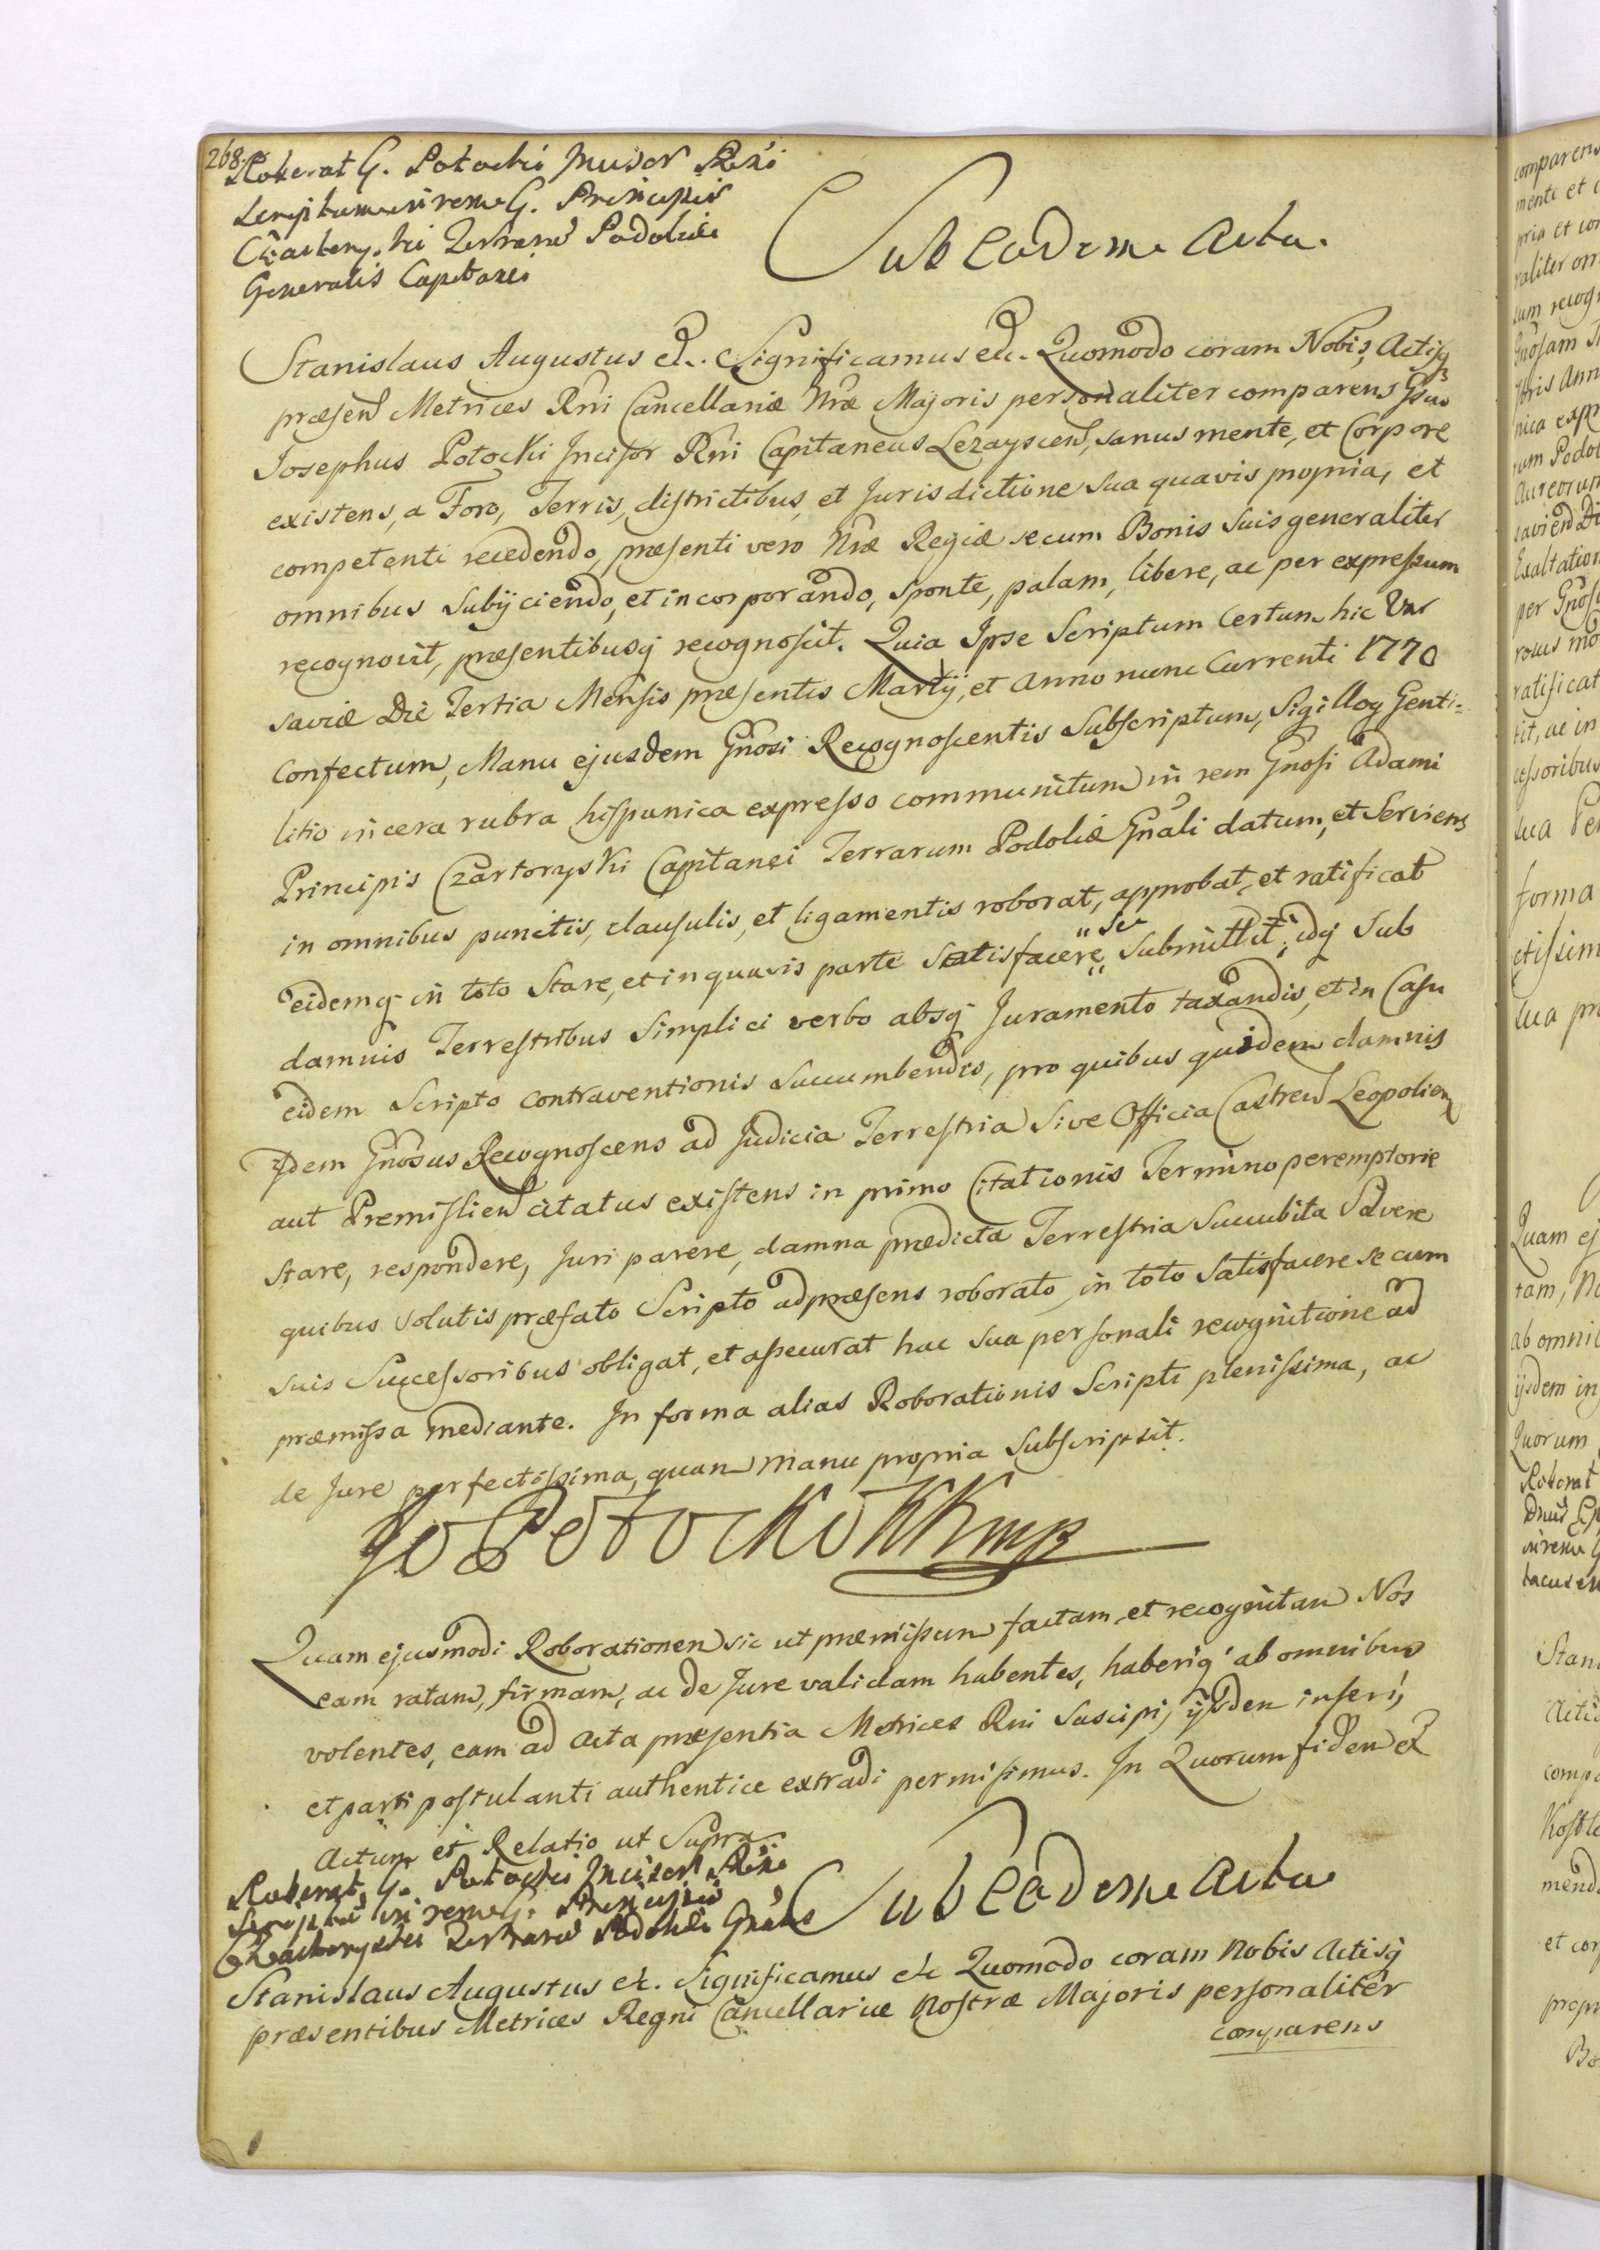 268.
Roborat G. Potocki Incisor Rni
Scriptum in rem G. Principis
Czartoryski Terrarum Podoliæ
Generalis Capitanei
Sub Eadem Acta.
Stanislaus Augustus etc. Significamus etc. Quomodo coram Nobis, Actisq
præsen Metrices Rni Cancellariæ Nræ Majoris personaliter comparens Gsus
Josephus Potocki Incisor Rni Capitaneus Lezayscen, sanus mente, et Corpore
existens, a Foro, Terris, districtibus, et Jurisdictione Sua quavis propria, et
competenti recedendo, præsenti vero Nræ Regiæ se cum Bonis Suis generaliter
omnibus Subijciendo, et incorporando, sponte, palam, libere, ac per expressum
recognovit, præsentibusq recognoscit. Quia Ipse Scriptum Certum hic Var
saviæ Die Tertia Mensis præsentis Martij, et Anno nunc Currenti 1770
Confectum, Manu ejusdem Gnosi Recognoscentis Subscriptum, Sigilloq Genti=
litio in cera rubra hispanica expresso communitum in rem Gnosi Adami
Principis Czartoryski Capitanei Terrarum Podoliæ Gnali datum, et Serviens
in omnibus punctis, clausulis, et ligamentis roborat, approbat, et ratificat
eidemq in toto Stare, et in quavis parte Satisfacere "se" Submittit, idq Sub
damnis Terrestribus Simplici verbo absq Juramento taxandis, et in Casu
eidem Scripto contraventionis Succumbendis, pro quibus quidem damnis
Idem Gnosus Recognoscens ad Judicia Terrestria Sive Officia Castren Leopolien
aut Premislien citatus existens in primo Citationis Termino peremptorie
Stare, respondere, Juri parere, damna prædicta Terrestria Succubita Solvere
quibus Solutis præfato Scripto ad præsens roborato in toto Satisfacere se cum
suis Successoribus obligat, et assecurat hac sua personali recognitione ad
præmissa mediante. In forma alias Roborationis Scripti plenissima, ac
de Jure perfectissima, quam manu propria Subscripsit.
Jo Potocki KK mp
Quam ejusmodi Roborationem sic ut præmissum factam, et recognitam Nos
eam ratam, firmam, ac de Jure validam habentes, haberiq ab omnibus
volentes, eam ad Acta præsentia Metrices Rni Suscipi, ijsdem inseri,
et parti postulanti authentice extradi permisimus. In Quorum fidem etc
Actum et Relatio ut Supra
Roborat G. Potocki Incisor Rni
Scriptu in rem G. Principis
Czartoryski Terrarum Podoliæ Gnalis
Sub Eadem Acta
Stanislaus Augustus etc. Significamus etc Quomodo coram Nobis Actisq
præsentibus Metrices Regni Cancellariæ Nostræ Majoris personaliter
comparens
comparens
mente et
pria et
raliter
cum
per
ratificat
tit, ac in
cessoribus
sua
forma
ctissim
sua
Quam ej
tam,
ab omni
ijsdem in
Quorum
Roborat
Stan
Actis
comp
mend
et cor
prop
Bo